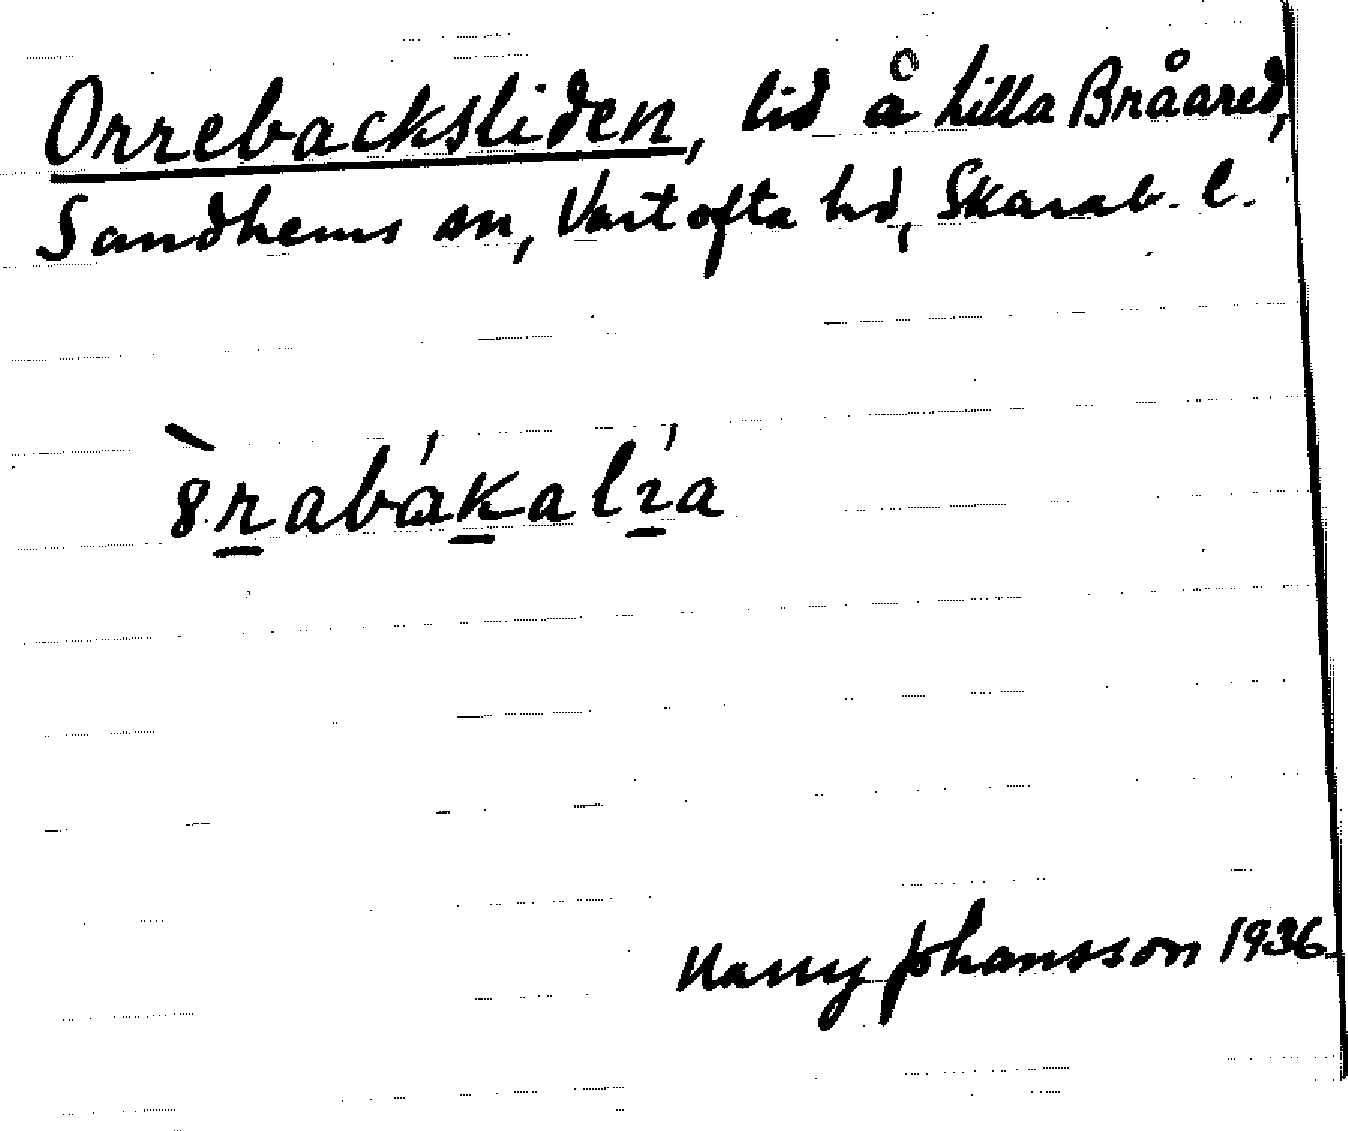 Orrebacksliden, lid å Lilla Bråared,
Sandhems sn, Vartofta hd, Skarab. l.
8̀rabákalíɿa
Harry Johansson 1936